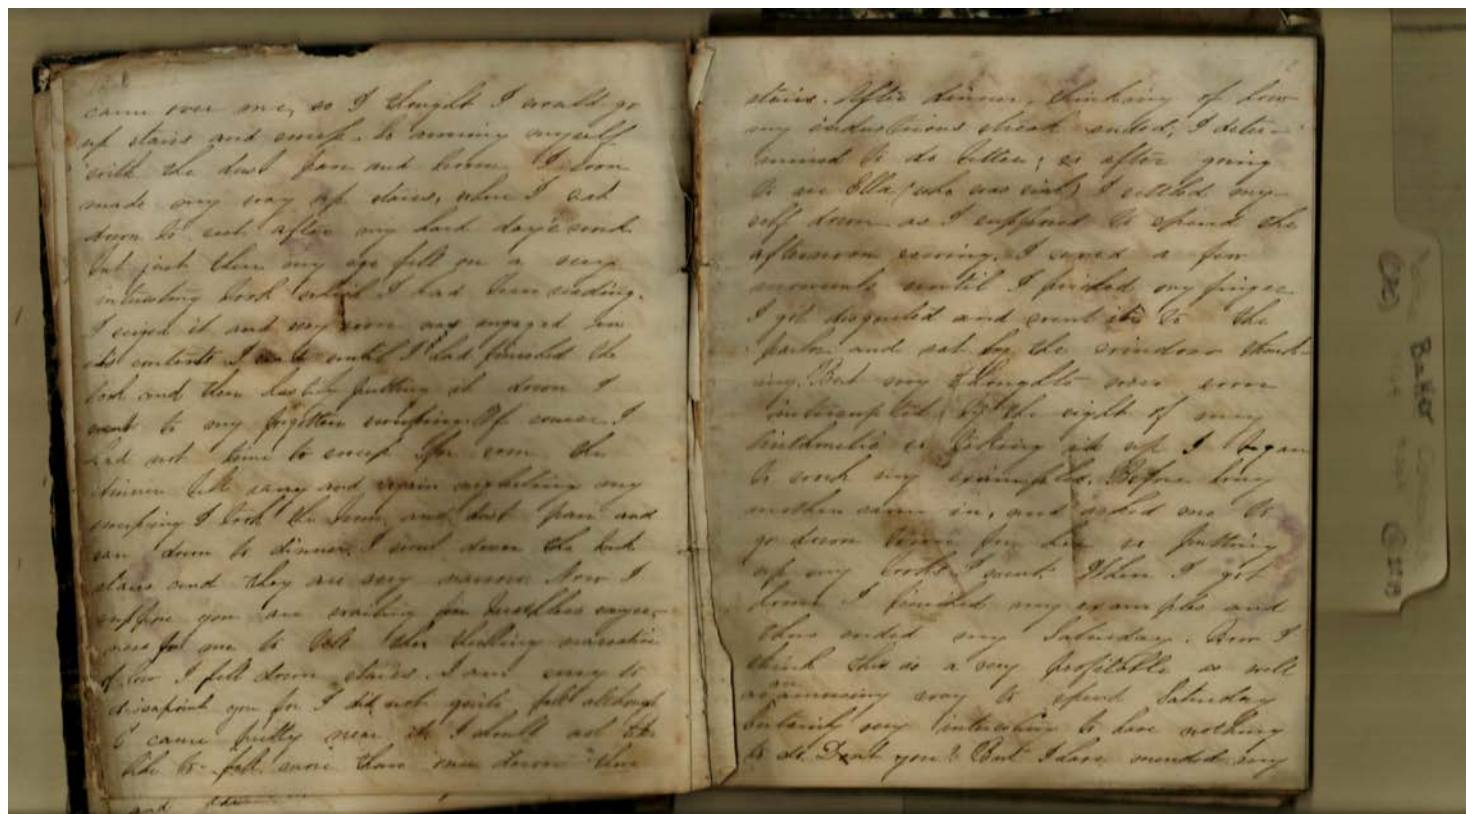 came over me, so I thought I would go
up stairs and sweep. So arming myself
with the dust pan and broom I soon
made my way up stairs, when I sat
down to rest after my hard day's work
but just then my eye fell on a very
interesting book which I had been reading.
I seized it and very soon was engaged in
its contents. I read until I had finished the
book and then hastily putting it down I
went to my forgotten sweeping. Of course I
had not time to sweep for soon the
dinner bell rang and again neglecting my
sweeping I took the broom and dust pan and
ran down to dinner. I went down the back
stairs and they are very narrow. Now I
suppose you are waiting in breathless eager-
ness for me to tell the thrilling narrative
of how I fell down stairs. I am sorry to
disapoint you for I did not quite fall although
I came pretty near it. I should not
like to fall more than once down
and
stairs. After dinner, thinking of how
my industrious streak ended, I deter-
mined to do better; so after going
to see Ella (who was sick) I settled my-
self down as I supposed to spend the
afternoon sewing. I sewed a few
moments until I pricked my finger
I got disgusted and went into the
parlor and sat by the window think-
ing. But my thoughts were soon
interrupted by the sight of my
Arithmetic so taking it up I began
to work my examples. Before long
mother came in, and asked me to
go down town for her so putting
up my books I went. When I got
home I finished my examples and
thus ended my Saturday. Now I
think this is a very profitable as well
as an amusing way to spend Saturday
certainly very interesting to have nothing
to do. Dont you? But I have mended my
Baker